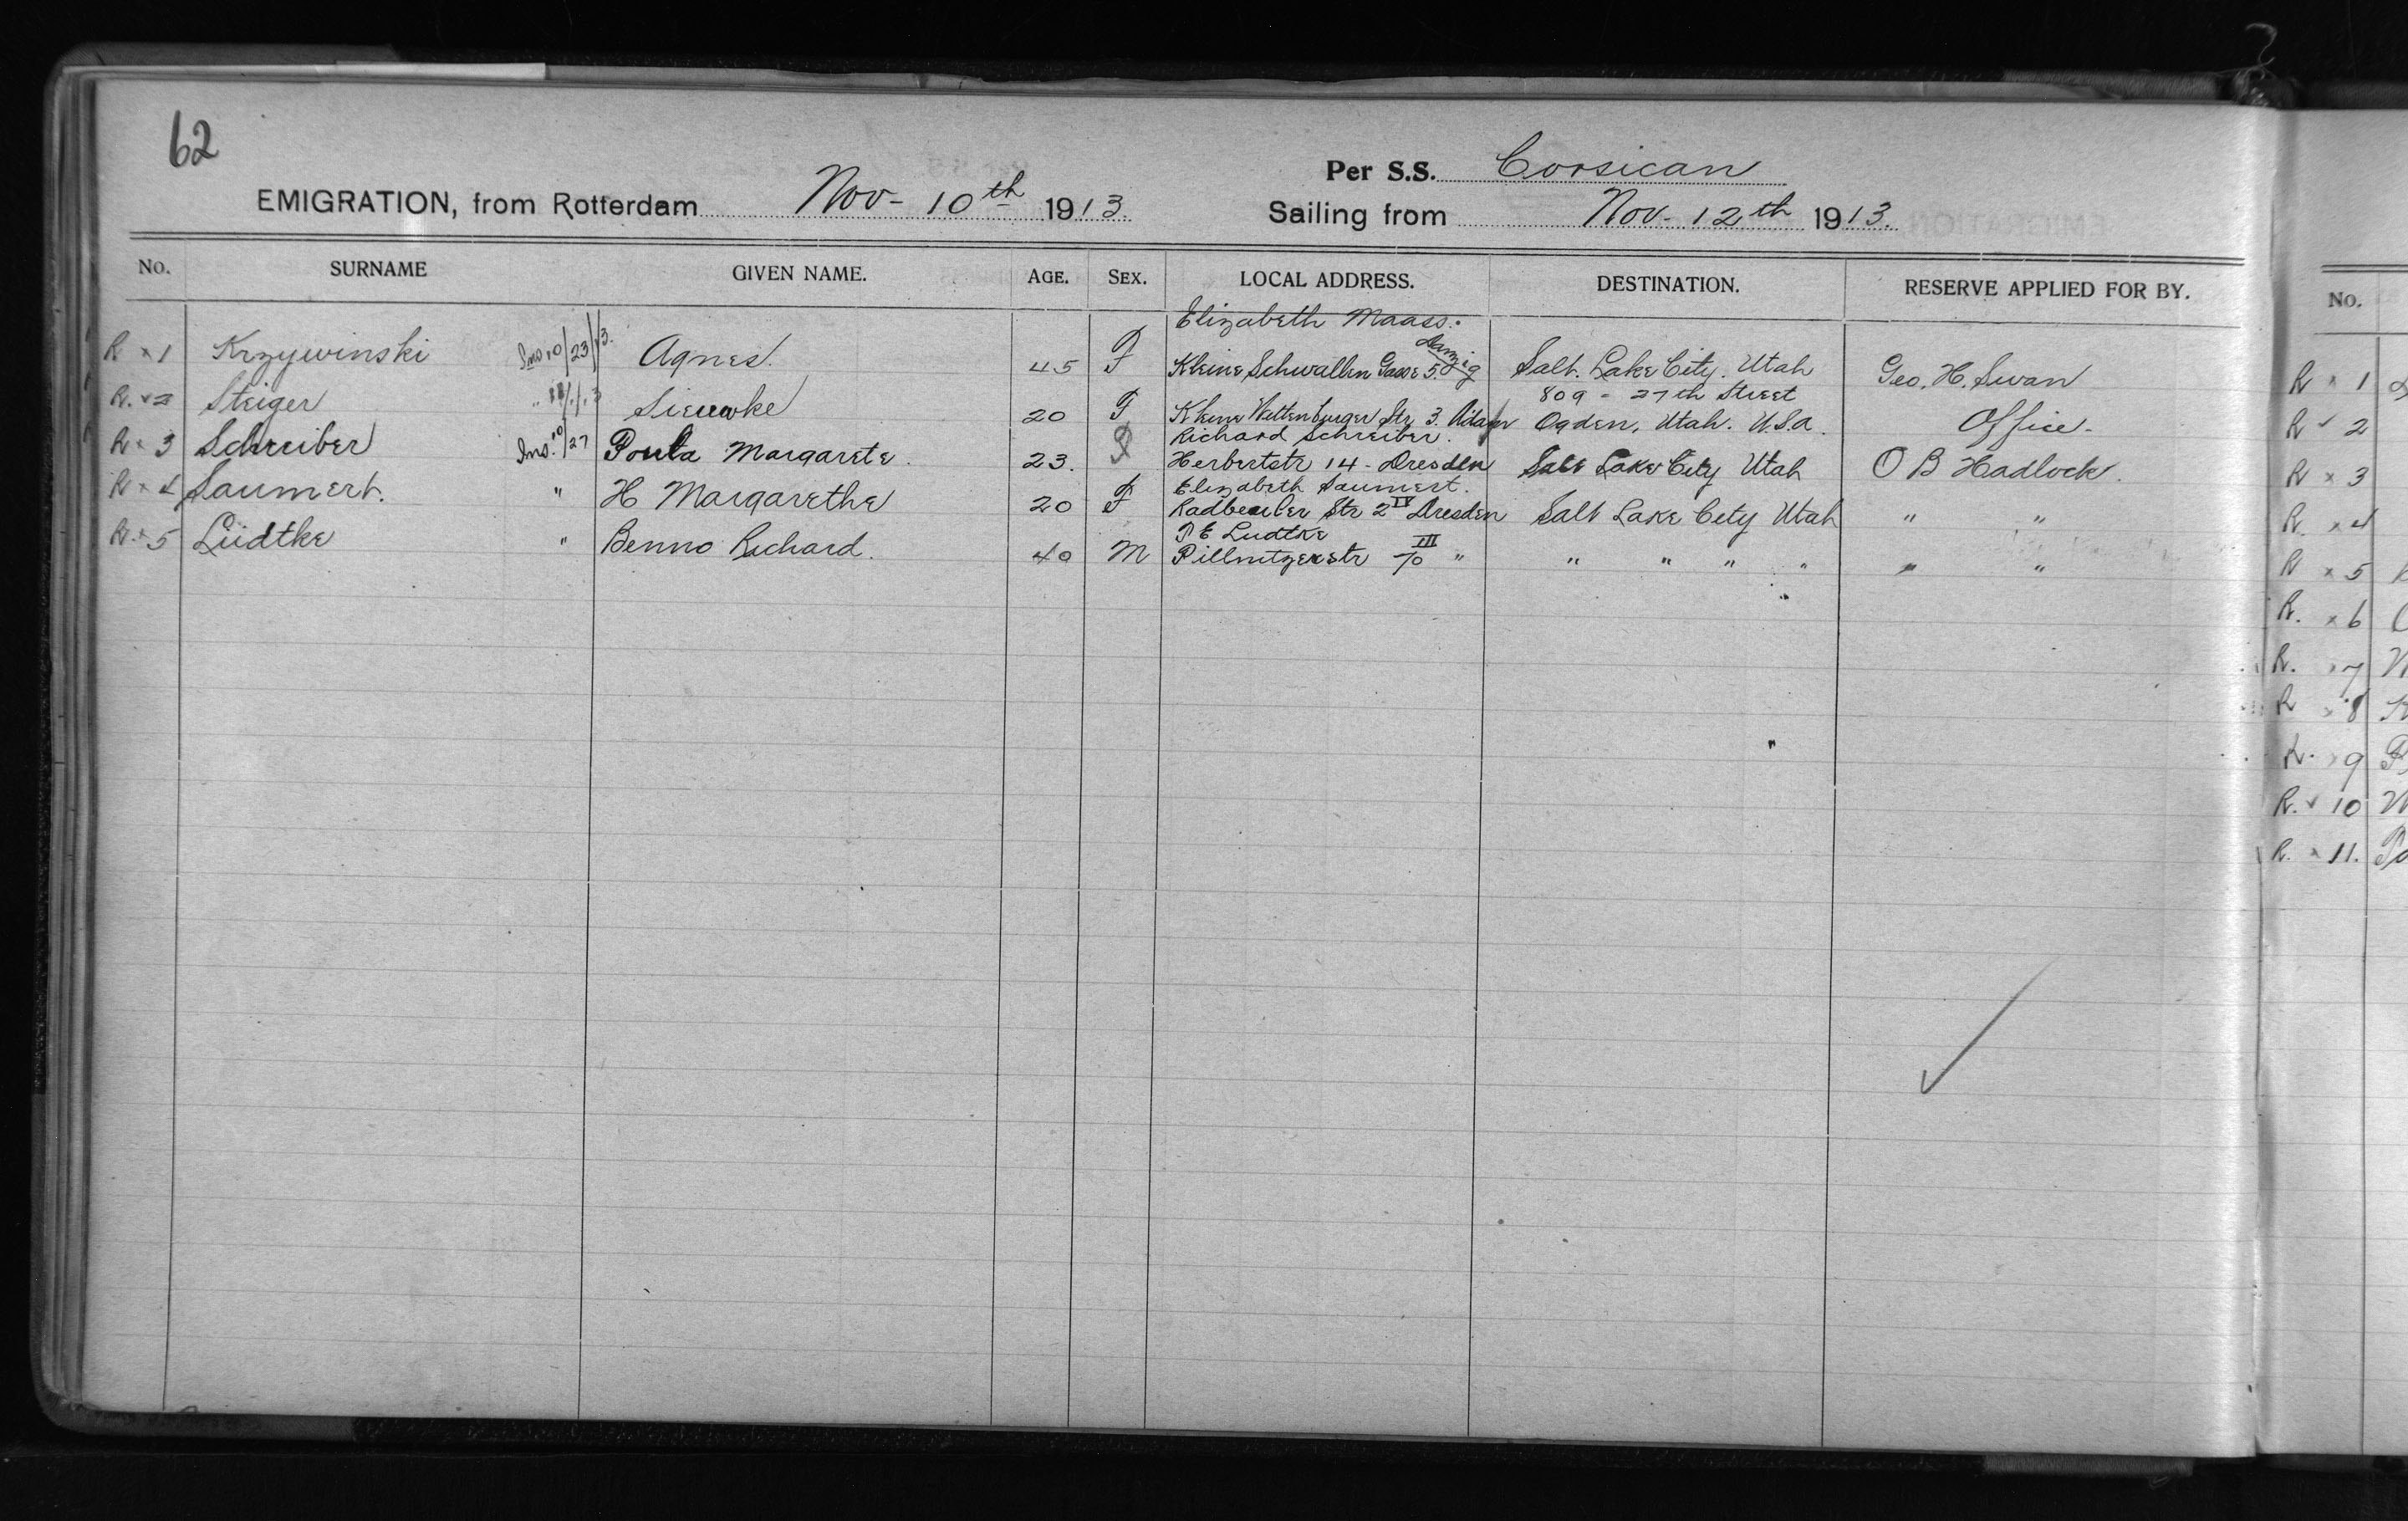 62
Per S.S. Corsican
EMIGRATION, from Rotterdam Nov- 10th 1913.
Sailing from Nov- 12th 1913.
No. SURNAME GIVEN NAME. AGE. SEX. LOCAL ADDRESS. DESTINATION. RESERVE APPLIED FOR BY.
Elizabeth Maass.
R x 1 Krzywinski Ins 10/23/13. Agnes. 45 F Kleine Schwalben Gasse 5. Danzig Salt. Lake City. Utah Geo. H. Swan
809 - 27th Street
R. x 2 Steiger Sieuwke 20 F Kleine Str. 3. Ogden, Utah. U.S.A. Office.
Richard Schreiber.
R x 3 Schreiber Ins. 10/27 Margarete. 23. F Herbertstr 14 - Dresden Salt Lake City Utah O B Hadlock.
Elizabeth Saumert.
R x 4 Saumert. " H Margarethe 20 F Str 2 IV Dresden Salt Lake City Utah " "
P E Ludtke
R. x 5 Lüdtke " Benno Richard. 40 M Pillnitzerstr 70 III " " " " " " "
No.
R x 1
R 2
R x 3
R. x 4
R x 5
R. x 6
R. 7
R x 8
R. 9
R. 10
R. x 11.